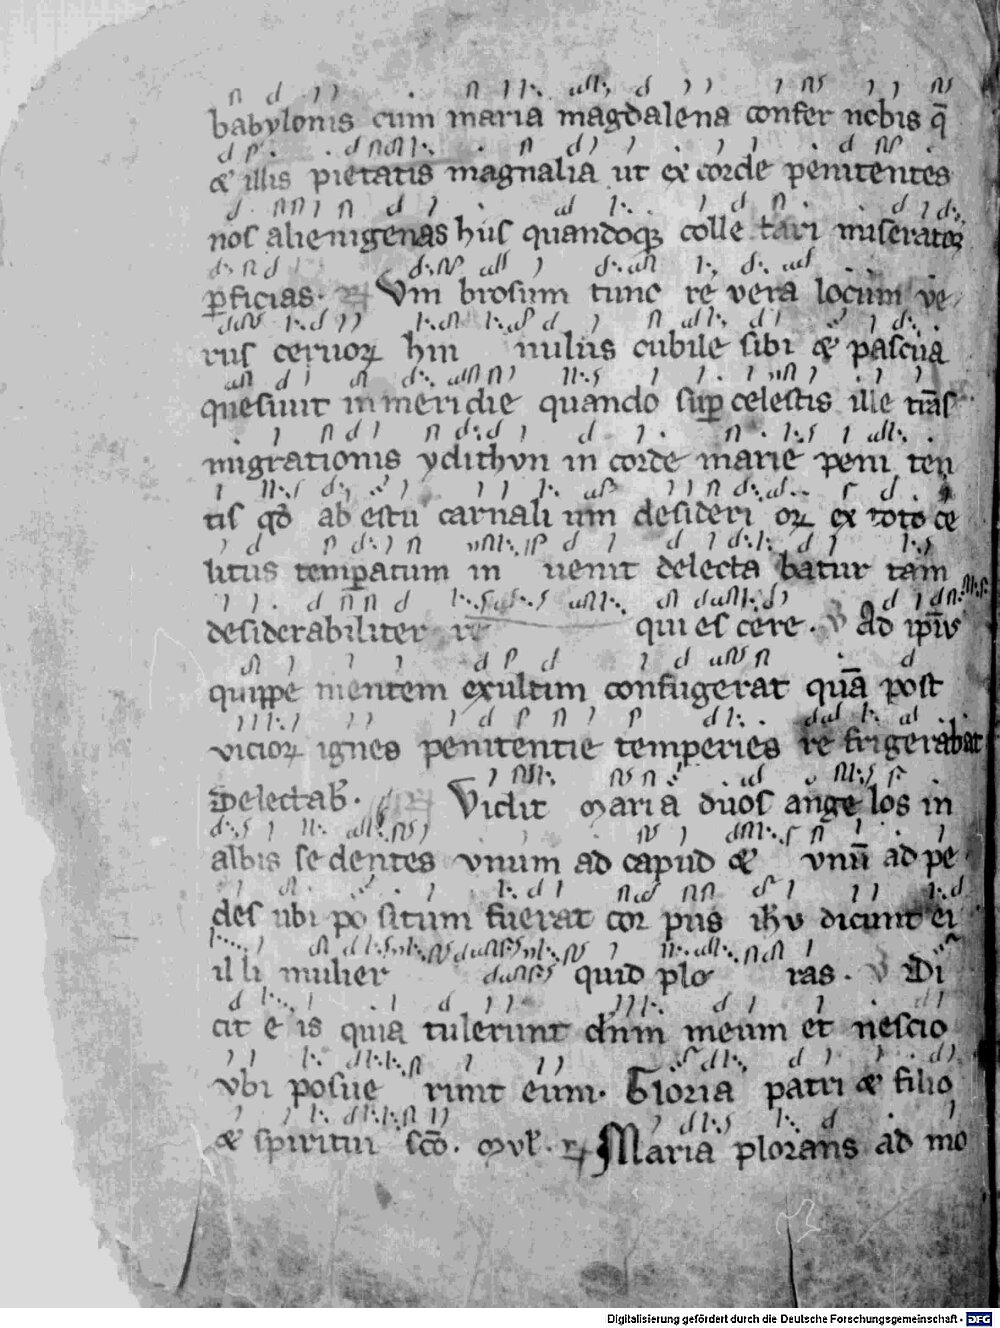 babylonis cum maria magdalena confer nobis q̄
& illis pietatis magnalia ut ex corde penitentes
nos alienigenas huſ quandoqꝫ colle tari miseratoꝝ
ꝑficias. Vm brosum tunc re vera locum ve
ruſ ceruoꝝ hin nuluſ cubile sibi & paſcua
quesiuit in meridie quando suꝑ celestis ille trāſ
migrationis ydithvn in corde marie peni ten
tiſ ab estu carnali um desideri oꝝ ex toto ce
litus temꝑatum in uenit delecta batur tam
desiderabiliter re qui eſ cere. V Ad ipiuſ
quippe mentem exultim confugerat quā post
vicioꝝ igneſ penitentie temperies re frigerabat
Delectab. Vidit maria duoſ ange los in
albis se dentes vnum ad capud & vnū ad pe
deſ ubi po situm fuerat cor pus ih̄v dicunt ei
il li mulier quid plo ras. V Di
cit e is quia tulerunt dn̄m meum et neſcio
vbi posue runt eum. Gloria patri & filio
& ſpiritui scō. Mul. Maria plorans ad mo
Digitalisierung gefördert durch die Deutsche Forschungsgemeinschaft - DFG